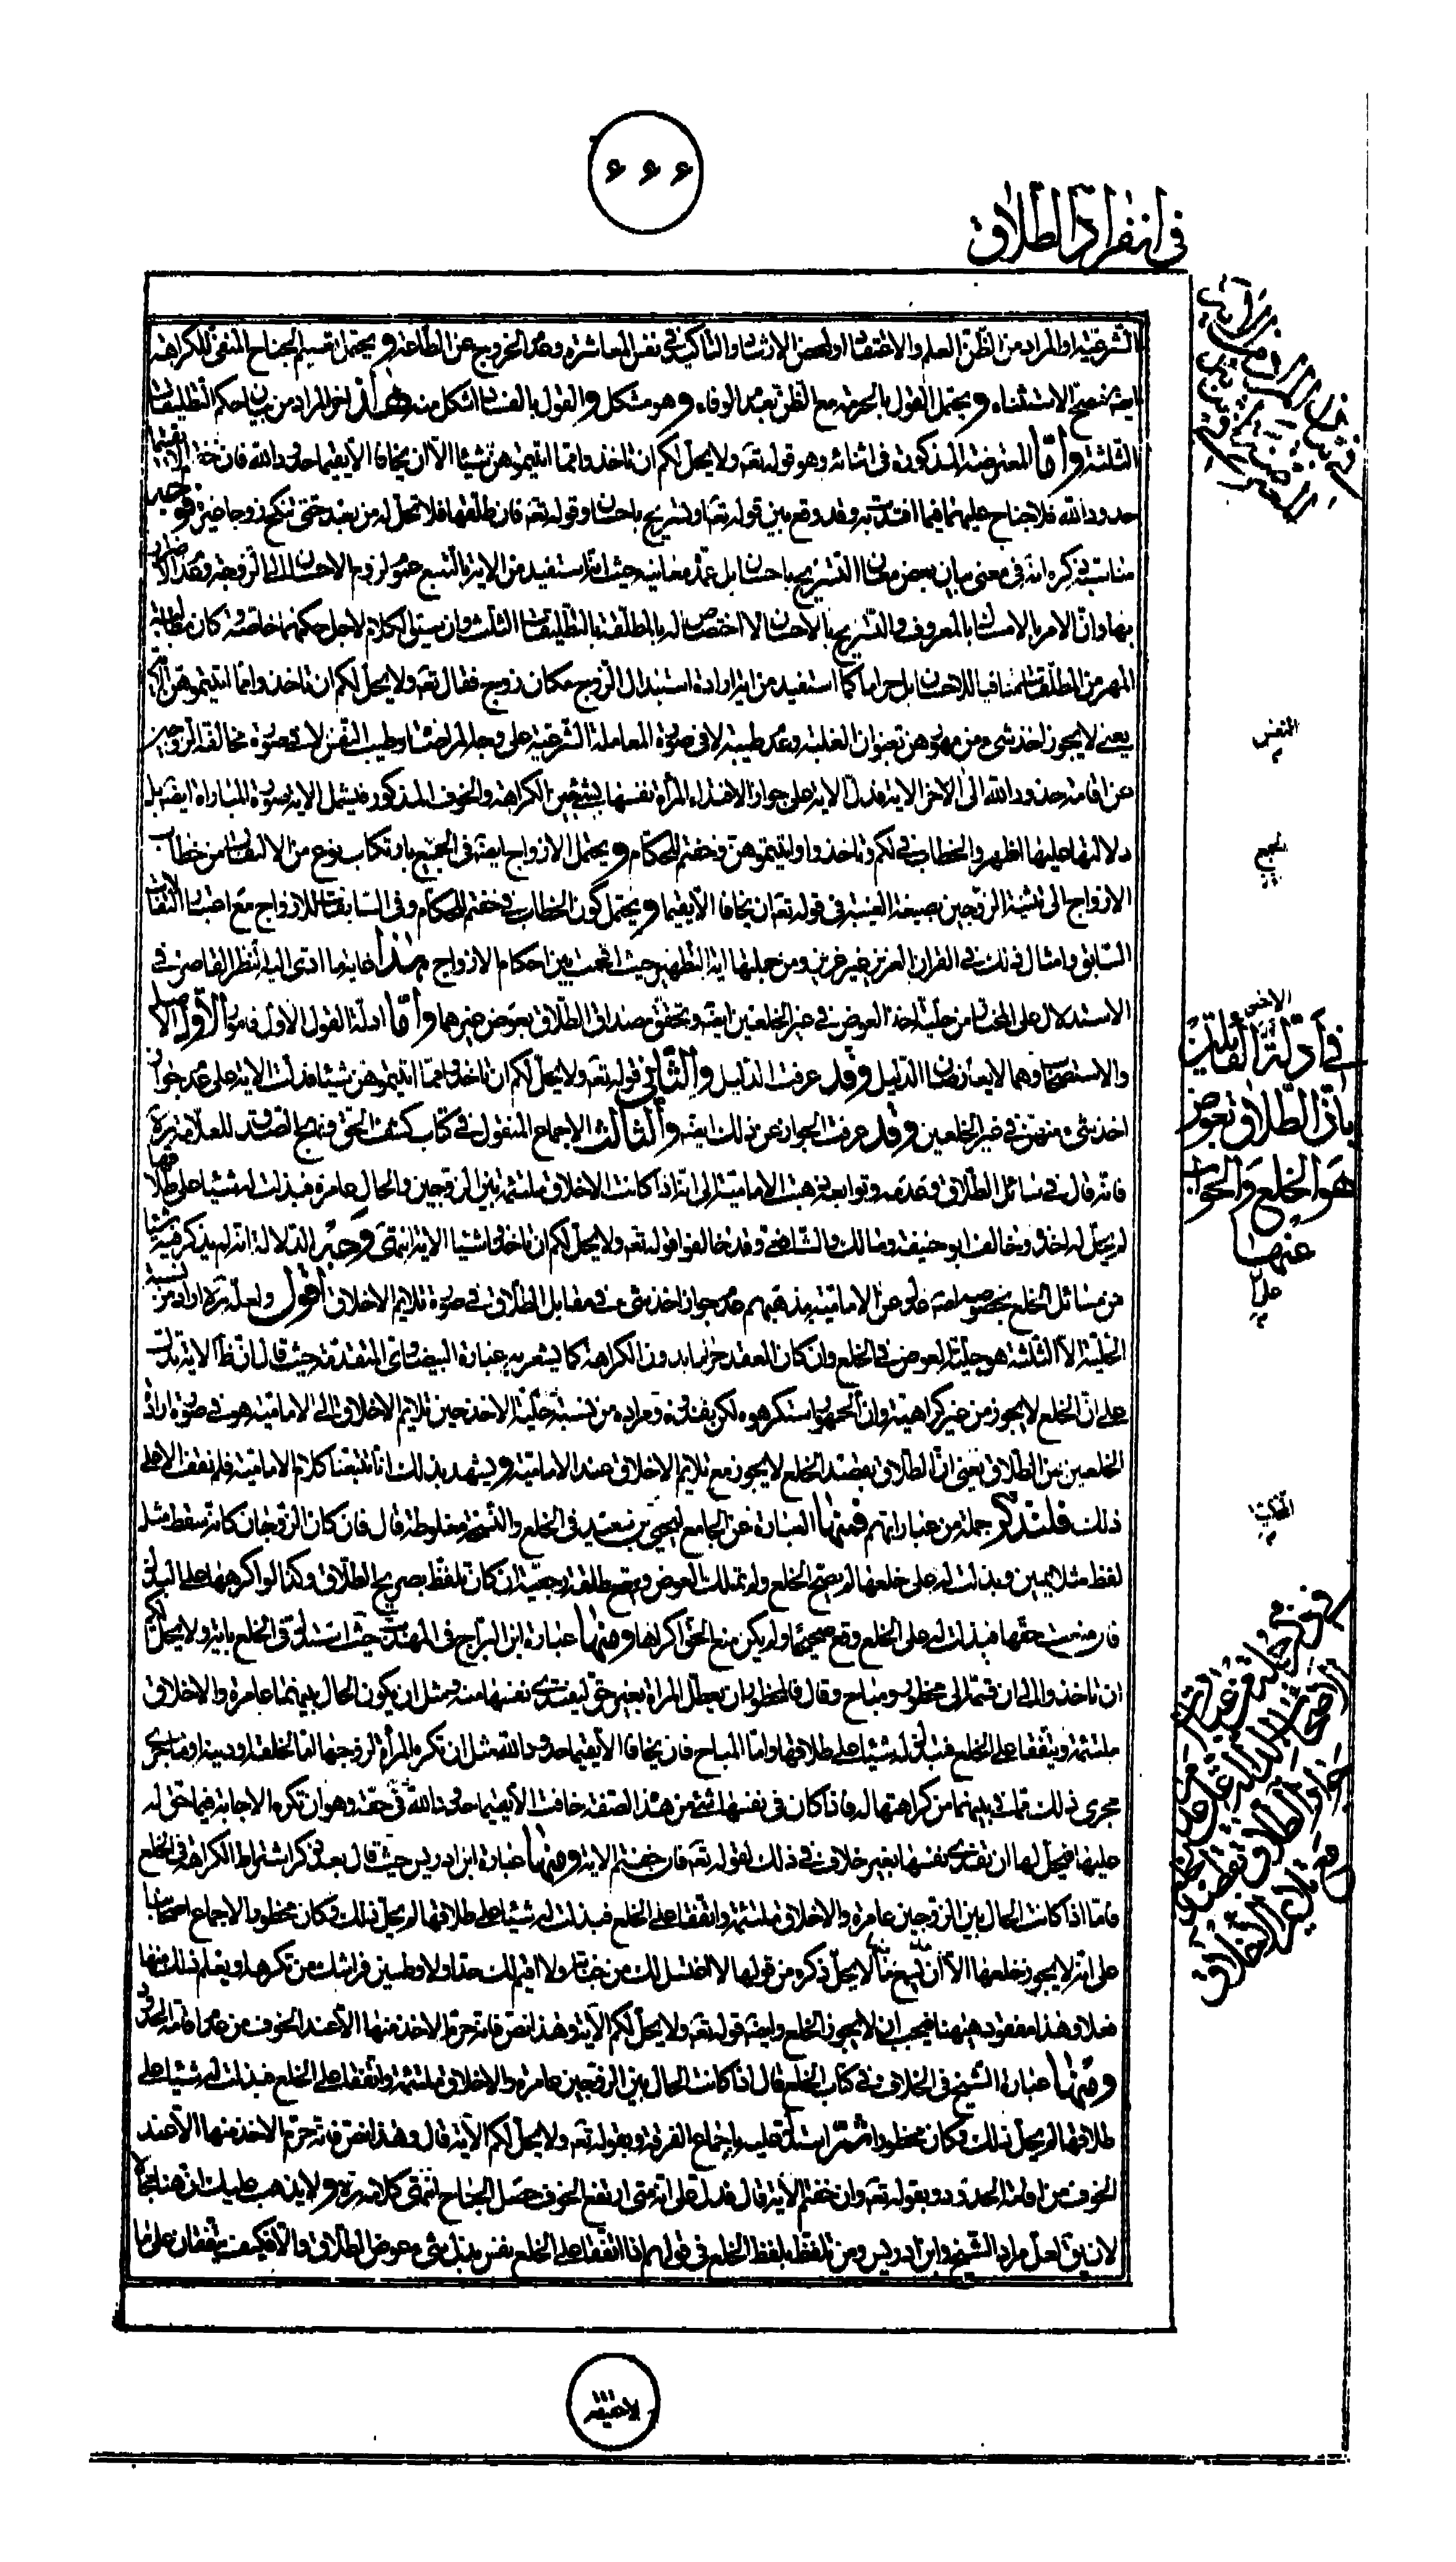 ۶۶۶
في انفراد الطلاق
الشرعية او المراد من الظن العلم والاعتقاد او لمحض الارشاد والتاكيد في نفس المعاشرة وعدم الخروج عن الطاعة ويحتمل تعميم الجناح المنفى للكراهة
ايضا فيصح الاستثناء ويحتمل القول بالحرمة مع الظن بعدم الوفاء وهو مشكل والقول بالفساد اشكل منه هذا هو المراد من بيان حكم التطليقات
الثلثة واما المعترضة المذكورة في اثنائه وهو قوله تعه ولا يحل لكم ان تاخذوا مما اتيتموهن شيئا الا ان يخافا الا يقيما حدود الله فان خفتم الا يقيما
حدود الله فلا جناح عليهما فيما افتدت به وقد وقع بين قوله تعه او تسريح باحسان وقوله تعه فان طلقها فلا تحل له من بعد حتى تنكح زوجا غيره فوجه
مناسبة ذكره انه في معنى بيان بعض معانى التسريح باحسان بل عمدة معانيه حيث انه استفيد من الاية بالتبع لزوم الاحسان الى الزوجة وعدم الاضرار
بها وان الامر بالامساك بالمعروف والتسريح بالاحسان لا اختصاص له بالمطلقة بالتطليقات الثلث وان سيق الكلام لاجل حكمهما خاصة وكان مطالبة
المهر من المطلقات منافيا للاحسان بل حراما كما استفيد من اية ارادة استبدال الزوج مكان زوج فقال تعه ولا يحل لكم ان تاخذوا مما اتيتموهن الاية
يعنى لا يجوز اخذ شيء من مهورهن بعنوان الغلبة وعدم طيبة لا في صورة المعاملة الشرعية على وجه المراضاة وطيب النفس لا في صورة مخالفة الزوجين
عن اقامة حدود الله الى الاخر الاية فدل الاية على جواز الافتداء المراة نفسها بشيء حين الكراهة والخوف المذكور فيشمل الاية صورة المباراة ايضا بل
دلالتها عليها اظهر والخطاب في لكم وتاخذوا واتيتموهن وخفتم للحكام ويحتمل الازواج ايضا في الجميع بارتكاب نوع من الالتفات من خطاب
الازواج الى تثنية الزوجين بصيغة الغيبة في قوله تعه ان يخافا الا يقيما ويحتمل كون الخطاب في خفتم للحكام وفي السابقات للازواج مع اعتبار التفات
السابق وامثال ذلك في القران العزيز غير عزيز ومن جملتها اية التطهير حيث وقعت بين احكام الازواج هذا غاية ما ادى اليه نظر القاصر في
الاستدلال على المختار من حلية اخذ العوض في غير الخلعين ايضا وتحقق مصداق الطلاق بعوض غيرهما واما ادلة القول الاول فامور الاول الاصل
والاستصحاب وهما لا يعارضان الدليل وقد عرفت الدليل والثاني قوله تعه ولا يحل لكم ان تاخذوا مما اتيتموهن شيئا فدلت الاية على عدم جواز
اخذ شيء منهن في غير الخلعين وقد عرفت الجواب عن ذلك ايضا والثالث الاجماع المنقول في كتاب كشف الحق ونهج الصدق للعلامة ره
فانه قال في مسائل الطلاق وعدده وتوابعه ذهبت الامامية الى انه اذا كانت الاخلاق ملتئمة بين الزوجين والحال عامرة فبذلت له شيئا على طلاقها
لم يحل له اخذه وخالف ابو حنيفة ومالك والشافعي وقد خالفوا قوله تعه ولا يحل لكم ان تاخذوا شيئا الاية انتهى وجه الدلالة انه لم يذكر فيه شيئا
من مسائل الخلع بخصوصه فدل عن الامامية مذهبهم عدم جواز اخذ شيء في مقابل الطلاق في صورة تلايم الاخلاق اقول ولعله ره اراد من نسبة
الحلية الى الثلثة هو حلية العوض في الخلع وان كان العقد حراما بدون الكراهة كما يشعر به عبارة البيضاوى المتقدمة حيث قال ان ظ الاية يدل
على ان الخلع لا يجوز من غير كراهية وان الجمهور استكرهوه لكن نفذوه ومراده من نسبة حلية الاخذ حين تلايم الاخلاق الى الامامية هو في صورة ارادة
الخلعين من الطلاق يعني ان الطلاق بقصد الخلع لا يجوز مع تلايم الاخلاق عند الامامية ويشهد بذلك انا تتبعنا كلام الامامية فلم نقف الا على
ذلك فلنذكر جملة من عباراتهم فمنها العبارة عن الجامع ليحيى بن سعيد في الخلع والنسخة مغلوطة قال فان كان الزوجان كانه سقط مثل
لفظ مثلايمين وبذلت له على خلعها لم يصح الخلع ولم تملك العوض ويقع طلقة رجعية ان كان تلفظ بصريح الطلاق وكذا لو اكرهها على البذل
فان منعت حقها فبذلت له على الخلع وقع صحيحا ولم يكن منع الحق اكراها ومنها عبارة ابن البراج في المهذب حيث استدل في الخلع باية ولا يحل لكم
ان تاخذوا الى ان قسمه الى محظور ومباح وقال فالمحظور بان يعطل المراة بغير حق ليفتدى نفسها منه ومثل ان يكون الحال بينهما عامرة والاخلاق
ملتئمة ويتفقا على الخلع فتبذل له شيئا على طلاقها واما المباح فان يخافا الا يقيما حدود الله مثل ان تكره المراة زوجها اما لخلقه او دينه او ما جرى
مجرى ذلك مما في بينهما من كراهتها له فاذا كان في نفسها شيء من هذه الصفة خافت الا يقيما حدود الله في حقه وهو ان تكره الاجابة فيما حق له
عليها فيحل لها ان تفتدى نفسها بغير خلاف في ذلك لقوله تعه فان خفتم الاية ومنها عبارة ابن ادريس حيث قال بعد ذكر اشتراط الكراهة في الخلع
فاما اذا كانت الحال بين الزوجين عامرة والاخلاق ملتئمة واتفقا على الخلع فبذلت له شيئا على طلاقها لم يحل ذلك وكان محظورا لاجماع اصحابنا
على انه لا يجوز خلعها الا ان يسمع منها ما لا يحل ذكره من قولها لا اغتسل لك من جنابة ولا اقيم لك حدا ولاوطئن فراشك من تكرهه او يعلم ذلك منها
فعلا وهذا مفقود هيهنا فيجب ان لا يجوز الخلع وايضا قوله تعه ولا يحل لكم الاية وهذا نص فانه حرم الاخذ منها الا عند الخوف من عدم اقامة الحدود
ومنها عبارة الشيخ في الخلاف في كتاب الخلع قال اذا كانت الحال بين الزوجين عامرة والاخلاق ملتئمة واتفقا على الخلع فبذلت له شيئا على
طلاقها لم يحل ذلك وكان محظورا ثم استدل عليه باجماع الفرقة وبقوله تعه ولا يحل لكم الاية قال وهذا نص فانه حرم الاخذ منها الا عند
الخوف من اقامة الحدود وبقوله تعه وان خفتم الاية قال فدل على انه متى ارتفع الخوف حصل الجناح انتهى كلامه ره ولا يذهب عليك ان هنا مجالا
لان يق لعل مراد الشيخ وابن ادريس ومن تلفظ بلفظ الخلع في قولهم اذا اتفقا على الخلع نفس بذل شيء بعوض الطلاق والا فكيف يتفقان على ما
في ادلة القائلين
بان الطلاق بعوض
هو الخلع والجواب
عنها